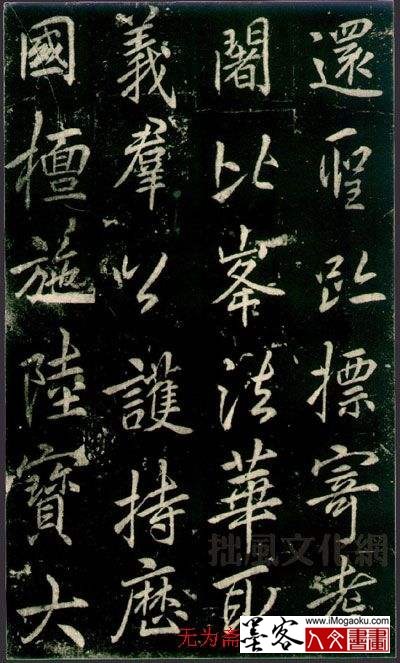 還聖趾標寄耆
闍比峯法華取
義羣公護持歷
國檀施陸寶大
拙風文化網
无为斋
墨客
www.iMogaoku.com
人文書畫